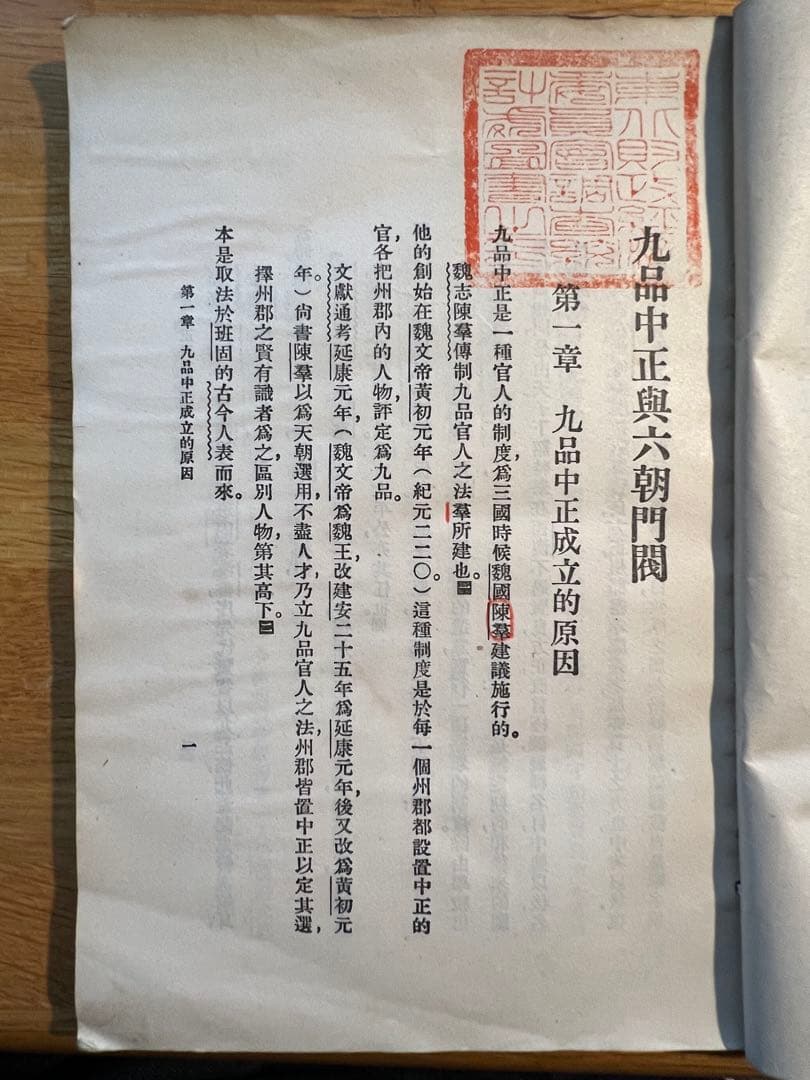 東北財政
委員會調查統
計處圖書之
九品中正與六朝門閥
第一章　九品中正成立的原因
九品中正是一種官人的制度，爲三國時候魏國陳羣建議施行的。
魏志陳羣傳制九品官人之法，羣所建也。〔一〕
他的創始在魏文帝黃初元年（紀元二二〇。）這種制度是於每一個州郡都設置中正的
官，各把州郡內的人物評定爲九品。
文獻通考延康元年（魏文帝爲魏王改建安二十五年爲延康元年，後又改爲黃初元
年。）尙書陳羣以爲天朝選用，不盡人才，乃立九品官人之法，州郡皆置中正以定其選，
擇州郡之賢有識者爲之，區別人物，第其高下。〔二〕
本是取法於班固的古今人表而來。
第一章　九品中正成立的原因
一